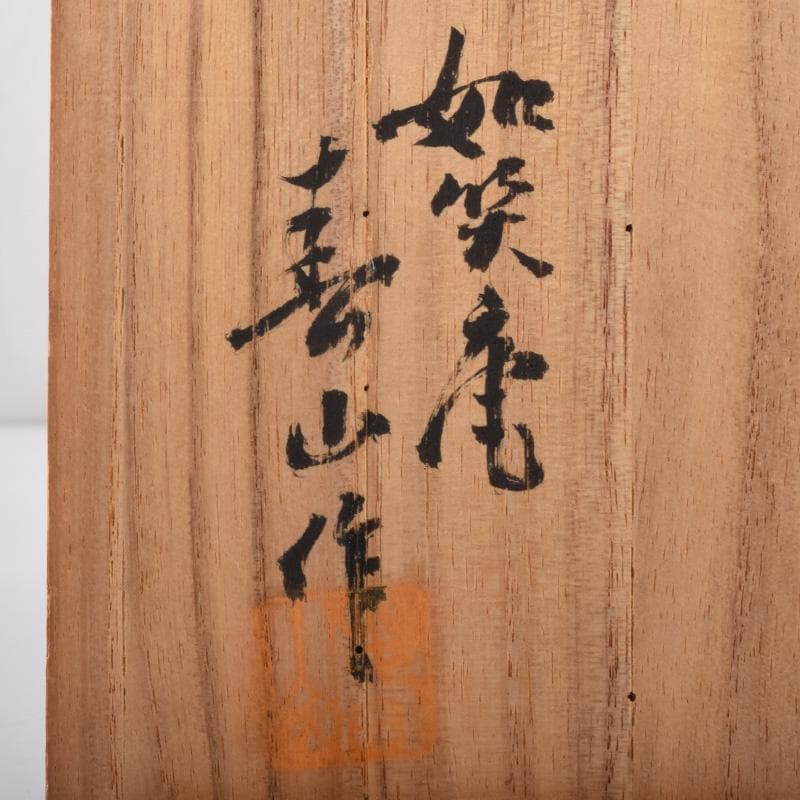 如笑庵
寿山作